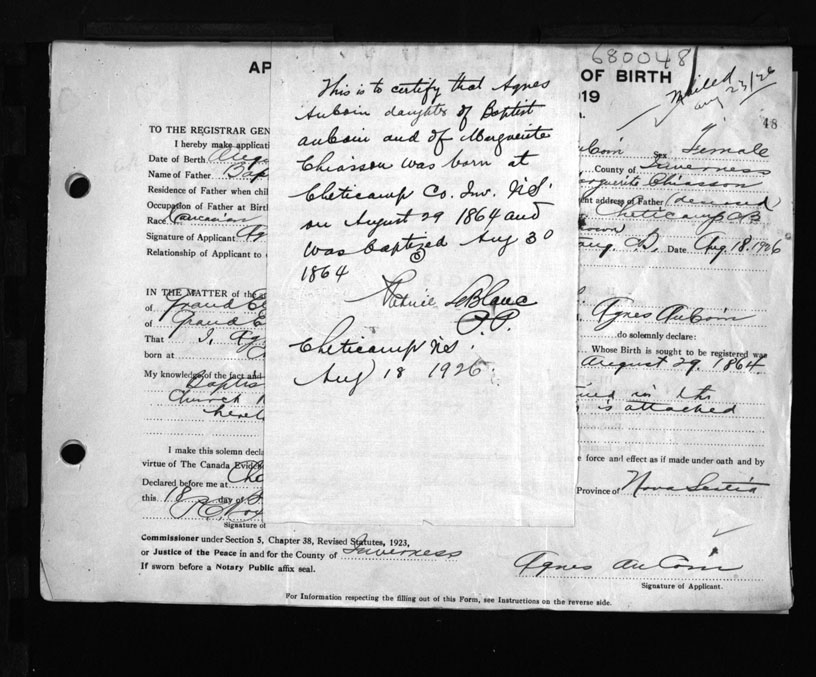 680048
Mailed
Aug 23/26
48
AP
OF BIRTH
019
TO THE REGISTRAR GEN
I hereby make applicati
Female
Date of Birth Aug
County of Inverness
Name of Father Bap
Marguerite Chiasson
Residence of Father when chil
ent address of Father (deceased
Occupation of Father at Birt
Cheticamp CB
Race
Signature of Applicant Ag
Date Aug. 18. 1926
Relationship of Applicant to
This is to certify that Agnes
AuCoin daughter of Baptist
AuCoin and of Marguerite
Chiasson was born at
Cheticamp Co. Inv. N.S.
on August 29 1864 and
was baptized Aug 30
1864
LeBlanc
P.P.
Cheticamp N.S.
Aug 18 1926.
IN THE MATTER of the
of Grand E
Agnes AuCoin
of Grand E
do solemnly declare:
That I, Ag
Whose Birth is sought to be registered was
born at
August 29. 1864.
My knowledge of the fact and
Baptis
in the
Church
is attached
I make this solemn decla
e force and effect as if made under oath and by
virtue of The Canada Evide
Declared before me at Che
Province of Nova Scotia
this 18 day of
Signature of
Commissioner under Section 5, Chapter 38, Revised Statutes, 1923,
or Justice of the Peace in and for the County of Inverness
If sworn before a Notary Public affix seal.
Agnes AuCoin
Signature of Applicant.
For Information respecting the filling out of this Form, see Instructions on the reverse side.